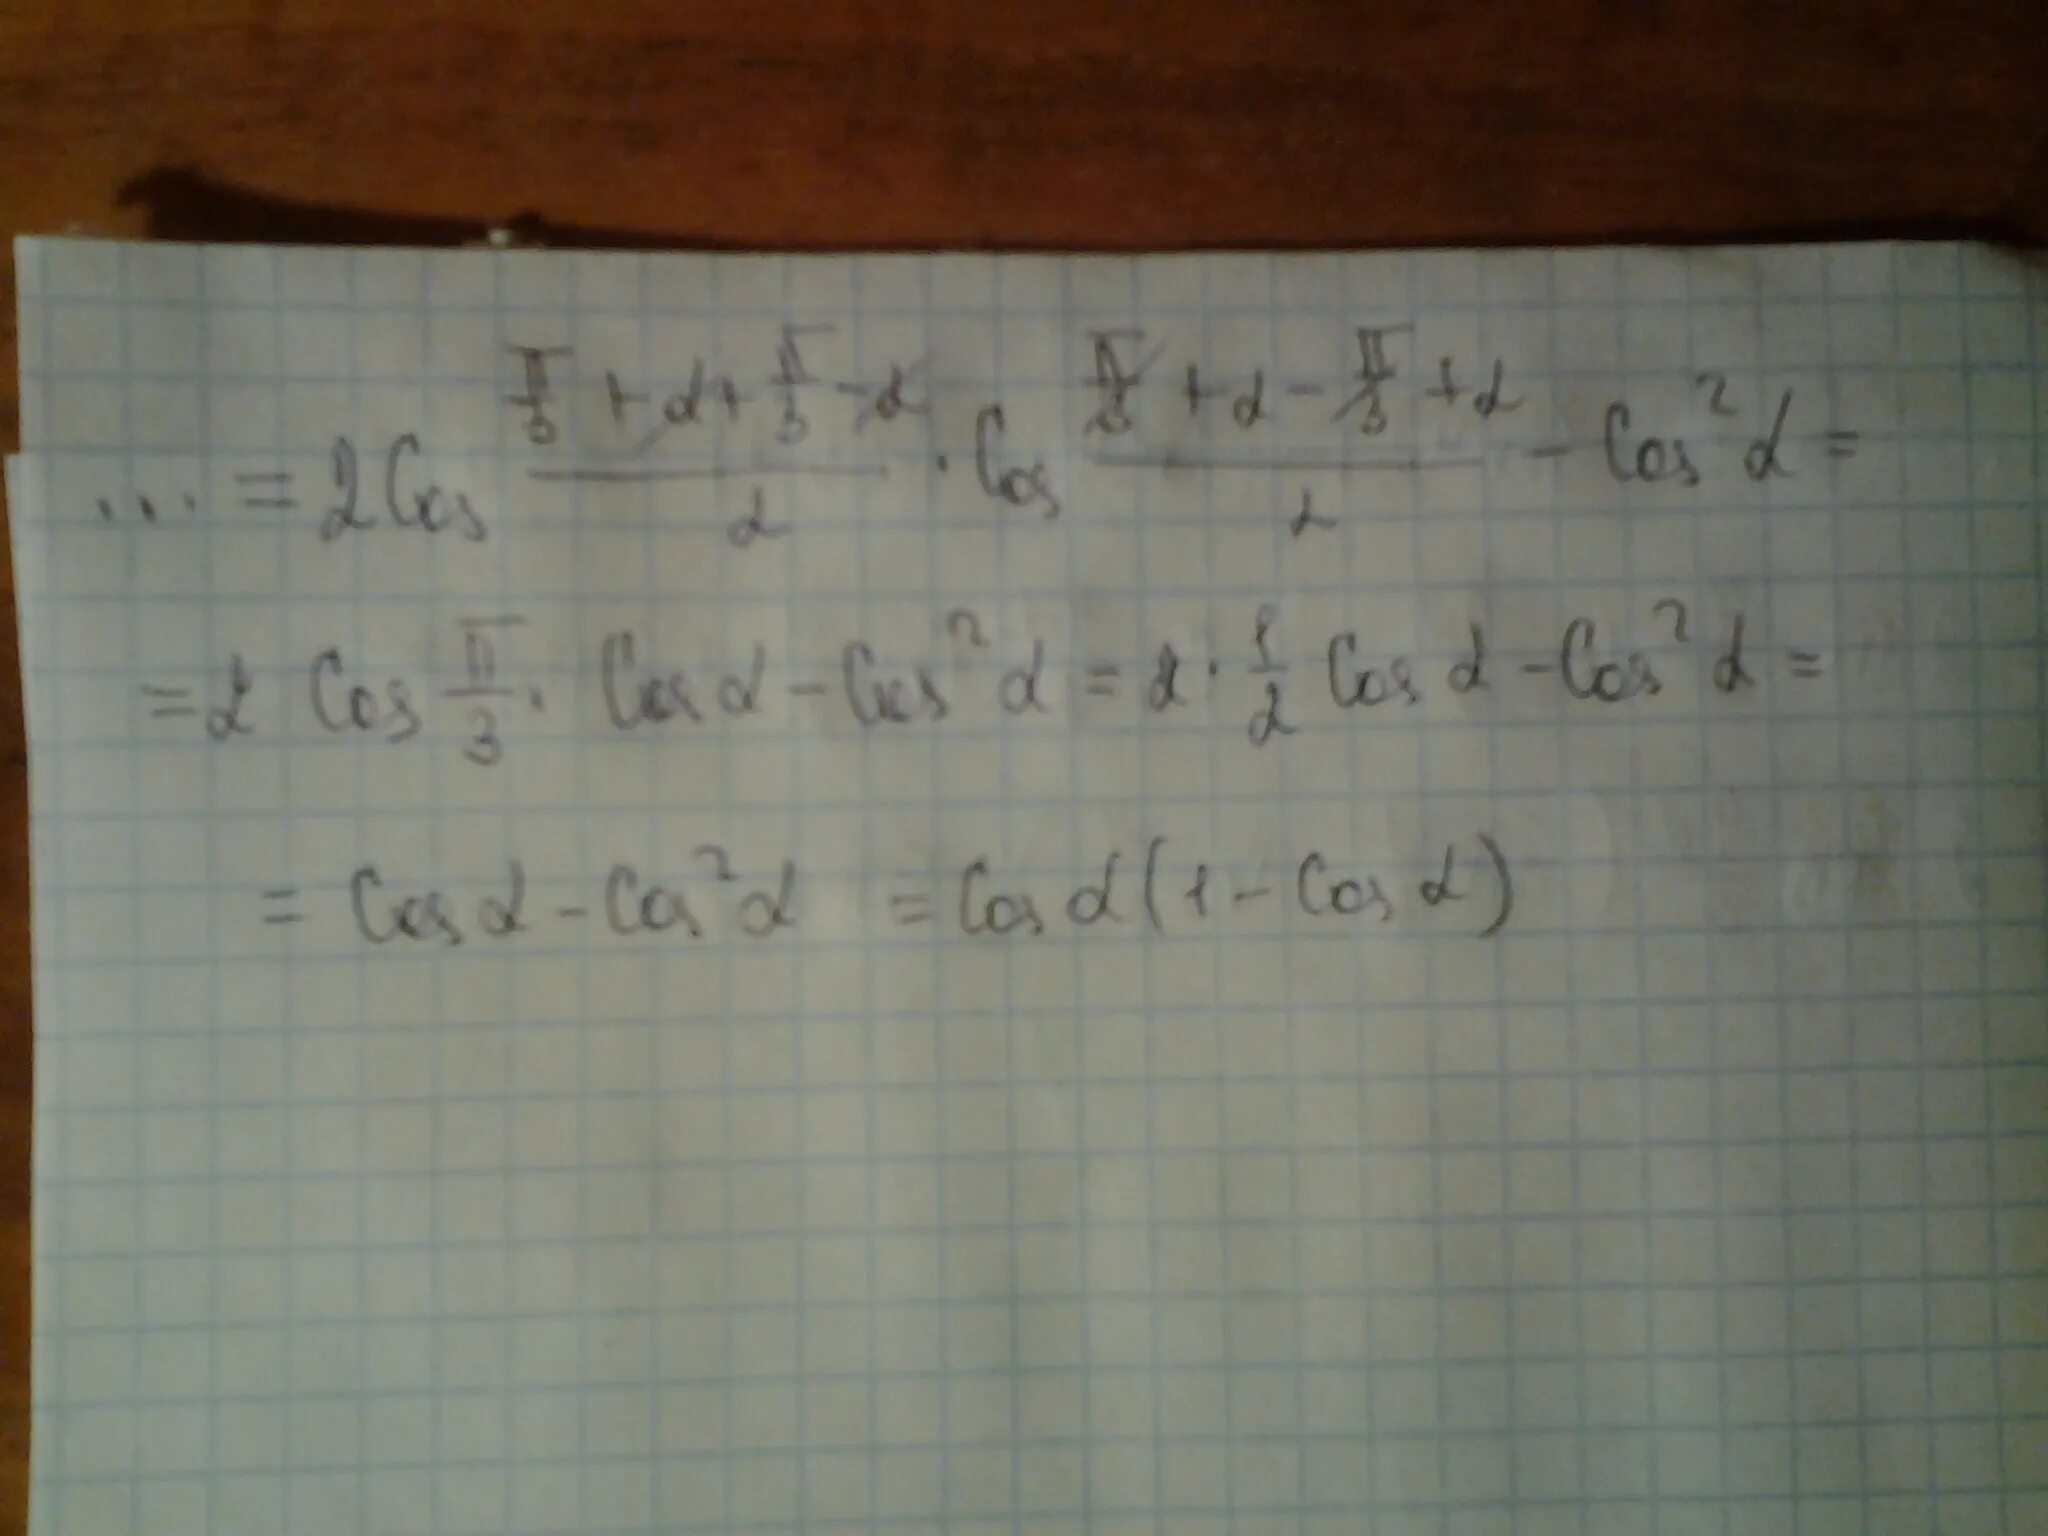 ... = 2Cos (π/3 + α + π/3 - α)/2 · Cos (π/3 + α - π/3 + α)/2 - Cos²α =
= 2 Cos π/3 · Cos α - Cos²α = 2 · 1/2 Cos α - Cos²α =
= Cos α - Cos²α = Cos α (1 - Cos α)